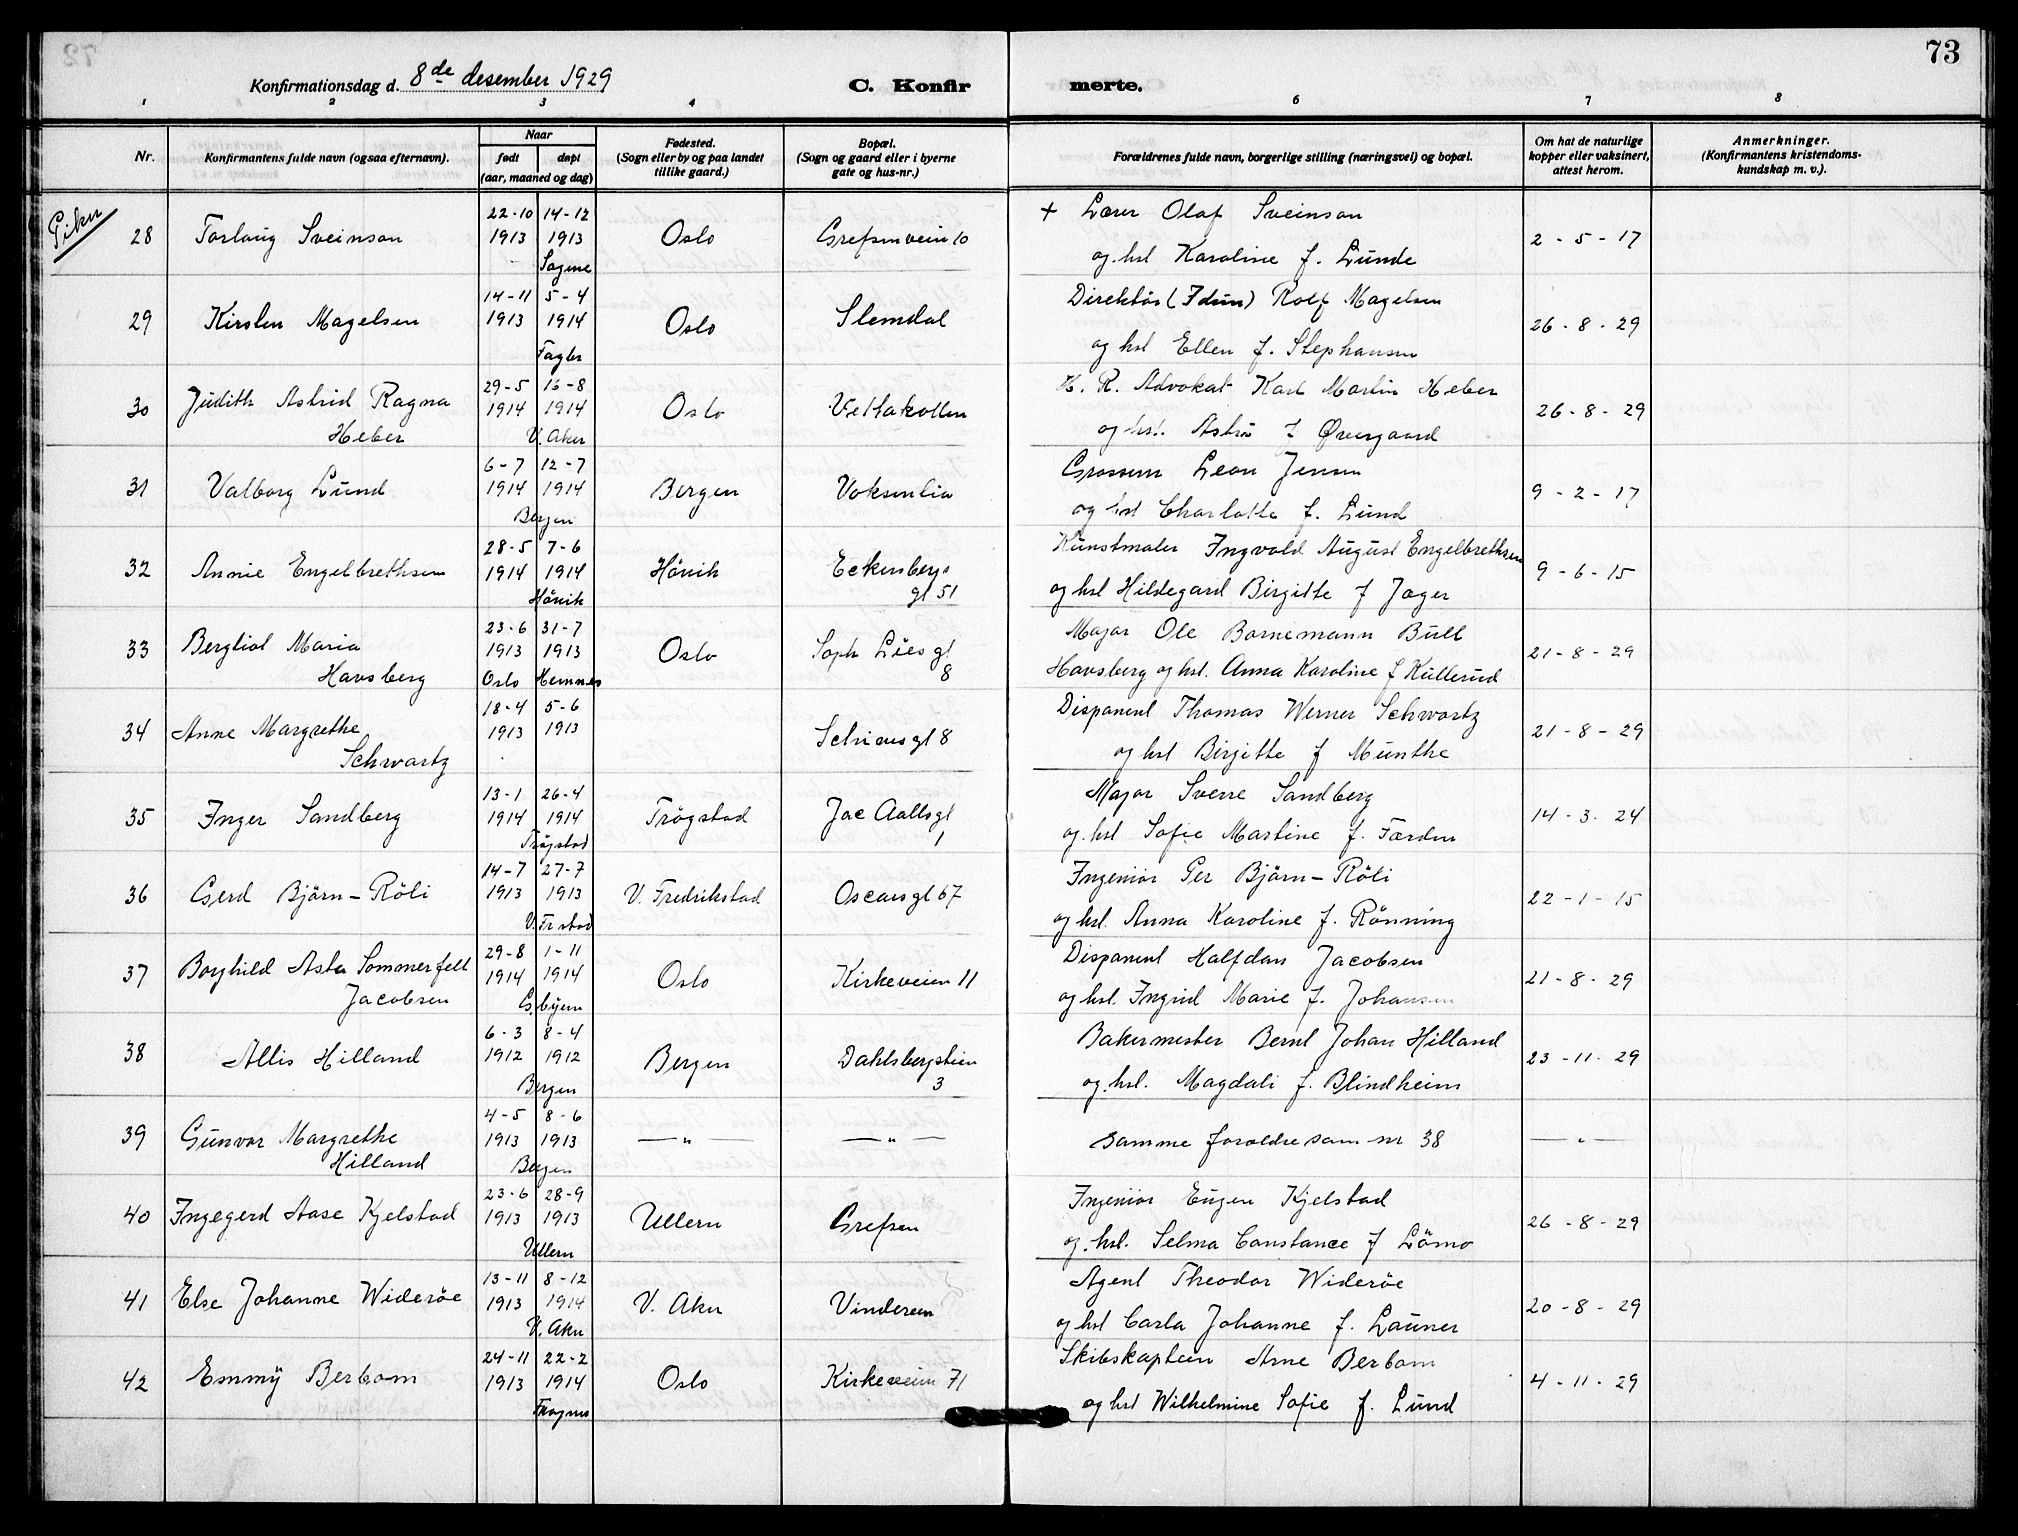 73
Konfirmationsdag d. 8de desember 1929
C. Konfirmerte.
1 2 3 4 6 7 8
Nr.
Konfirmantens fulde navn (ogsaa efternavn).
Naar
født døpt
(aar, maaned og dag)
Fødested.
(Sogn eller by og paa landet
tillike gaard.)
Bopæl.
(Sogn og gaard eller i byerne
gate og hus-nr.)
Forældrenes fulde navn, borgerlige stilling (næringsvei) og bopæl.
Om hat de naturlige
kopper eller vaksinert,
attest herom.
Anmerkninger.
(Konfirmantens kristendoms-
kundskap m. v.).
Piker
22-10 14-12 + Lærer Olaf Sveinson
28 Torlaug Sveinson 1913 1913 Oslo Grefsenveien 10 2-5-17
Sagene og hst Karoline f. Lunde
14-11 5-4 Direktör (Idun) Rolf Magelsen
29 Kirsten Magelsen 1913 1914 Oslo Slemdal 26-8-29
Fagerb og hst Ellen f. Stephansen
29-5 16-8 H. R. Advokat Karl Martin Heber
30 Judith Astrid Ragna 1914 1914 Oslo Vettakollen 26-8-29
Heber V. Aker og hst. Astri f Øvergaard
6-7 12-7 Grosserer Leon Jensen
31 Valborg Lund 1914 1914 Bergen Voksenlia 9-2-17
Bergen og hst Charlotte f. Lund
28-5 7-6 Kunstmaler Ingvald August Engelbrethsen
32 Annie Engelbrethsen 1914 1914 Hövik Eckersbergs 9-6-15
Hövik gt 51 og hst Hildegard Birgitte f Jæger
23-6 31-7 Major Ole Bornemann Bull
33 Bergliot Maria 1913 1913 Oslo Soph Lies gt 21-8-29
Havsberg Oslo Hemnes 8 Havsberg og hst. Anna Karoline f Kullerud
18-4 5-6 Disponent Thomas Werner Schwartz
34 Anne Margrethe 1913 1913 Schives gt 8 21-8-29
Schwartz og hst Birgitte f Munthe
13-1 26-4 Major Sverre Sandberg
35 Inger Sandberg 1914 1914 Trögstad Jac Aalls gt 14-3-24
Trögstad 1 og hst Sofie Martine f. Færden
14-7 27-7 Ingeniör Per Björn-Röli
36 Gerd Björn-Röli 1913 1913 V. Fredrikstad Oscars gt 67 22-1-15
V. Frstad og hst. Anna Karoline f. Rönning
29-8 1-11 Disponent Halfdan Jacobsen
37 Borghild Asta Sommerfelt 1914 1914 Oslo Kirkeveien 11 21-8-29
Jacobsen G.byen og hst. Ingrid Marie f. Johansen
6-3 8-4 Bakermester Bernt Johan Hilland
38 Allis Hilland 1912 1912 Bergen Dahlsbergstien 23-11-29
Bergen 3 og hst. Magdali f. Blindheim
4-5 8-6
39 Gunvor Margrethe 1913 1913 — " — — " — samme foreldre som nr 38 — " —
Hilland Bergen
23-6 28-9 Ingeniör Eugen Kjelstad
40 Ingegerd Aase Kjelstad 1913 1913 Ullern Grefsen 26-8-29
Ullern og hst. Selma Constance f Lömo
13-11 8-12 Agent Theodor Wideröe
41 Else Johanne Wideröe 1913 1914 V. Aker Vinderen 20-8-29
V. Aker og hst Carla Johanne f. Launer
24-11 22-2 Skibskaptein Arne Berbom
42 Emmy Berbom 1913 1914 Oslo Kirkeveien 71 4-11-29
Frogner og hst Wilhelmine Sofie f. Lund